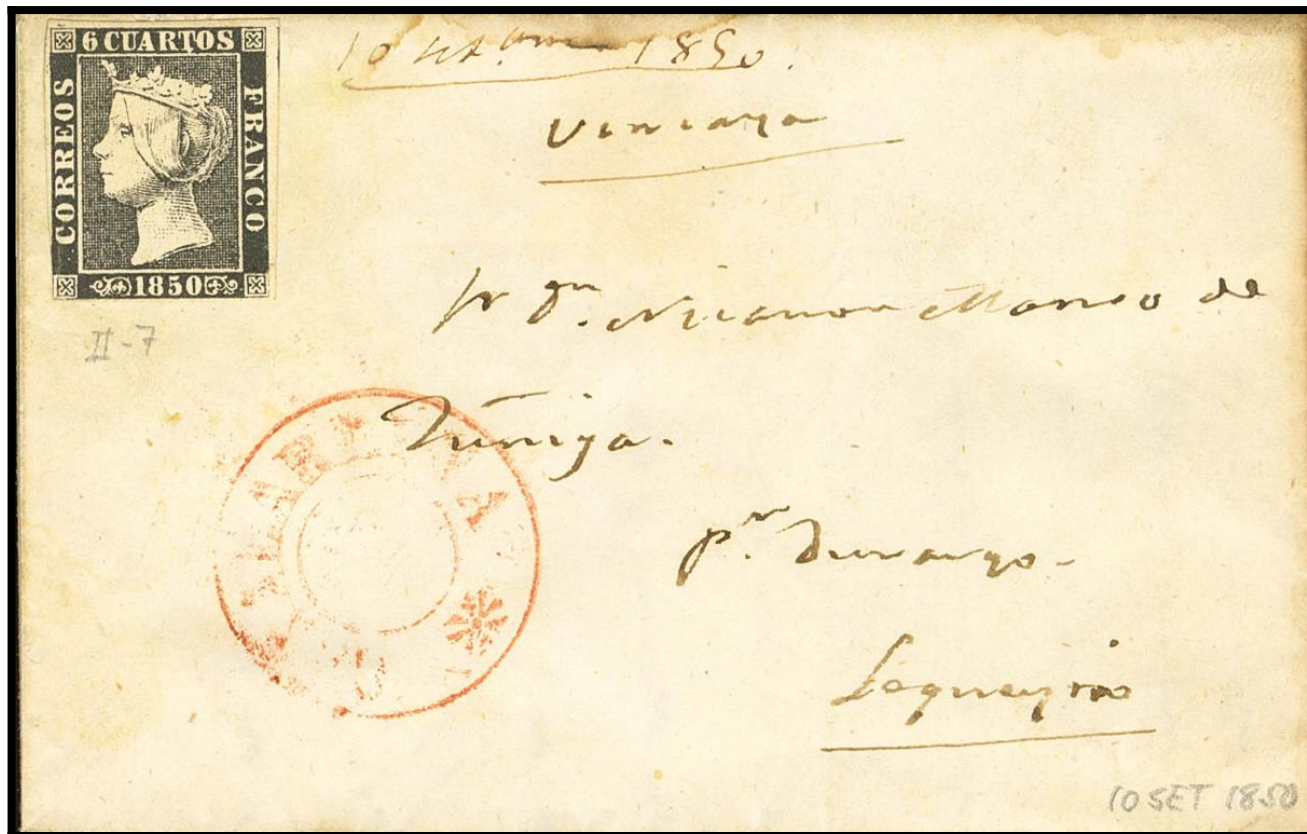 6 CUARTOS
CORREOS
FRANCO
1850
10 1850
Vizcaya
II-7
Sr Dn. Nicanor Manso de
Zúñiga.
pr. Durango.
Lequeytio
10 SET 1850